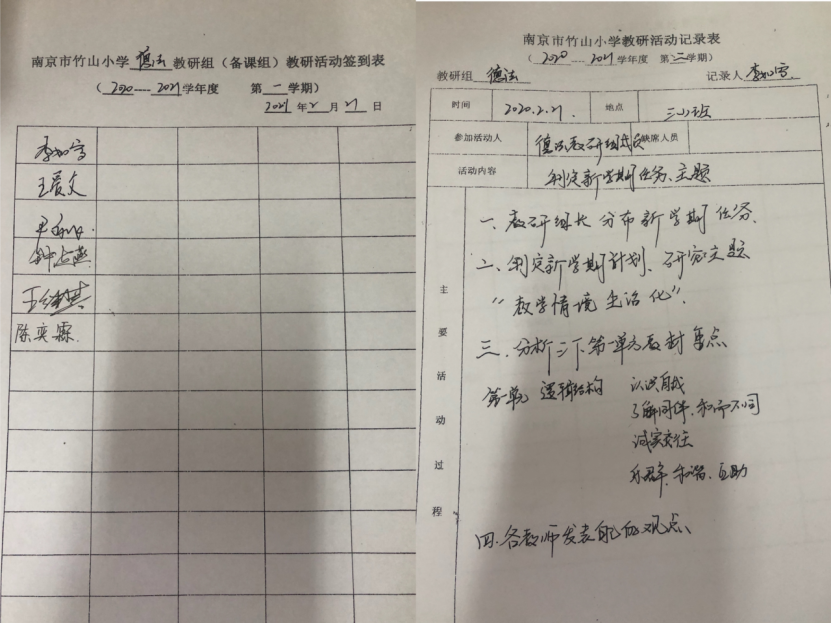 南京市竹山小学 德法 教研组（备课组）教研活动签到表
（2020----2021学年度 第一学期）
2021年2月21日
王爱文
陈奕霖
南京市竹山小学教研活动记录表
（2020----2021学年度 第二学期）
教研组 德法 记录人
时间 2020.2.21. 地点 三山班
参加活动人 德法教研组成员 缺席人员
活动内容 制定新学期任务、主题
主要活动过程
一、教研组长分布新学期任务、
二、制定新学期计划、研究主题
“教学情境生活化”.
三、分析三下第一单元教材重点
第一单元 逻辑结构 认识自我
了解同伴、和而不同
诚实交往
乐群、和谐、互助
四、各教师发表自己的观点、